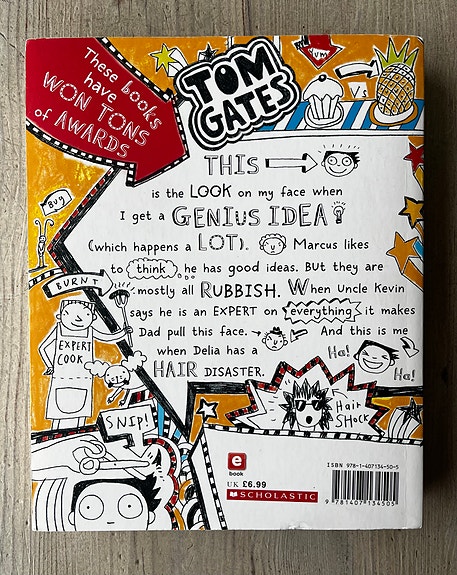 These books
have
WON TONS
of AWARDS
TOM
GATES
YUM
V's
THIS
is the LOOK on my face when
I get a GENIUS IDEA!
(which happens a LOT). Marcus likes
to think he has good ideas. But they are
mostly all RUBBISH. When Uncle Kevin
says he is an EXPERT on everything it makes
Dad pull this face. And this is me
when Delia has a
HAIR DISASTER.
Bug
BURNT
EXPERT
COOK
Ha!
Ha!
SNIP!
Hair
SHOCK
e
book
UK £6.99
SCHOLASTIC
ISBN 978-1-407134-50-5
9 781407 134505